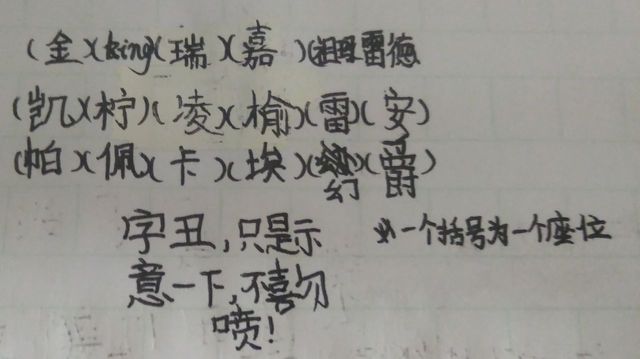 (金)(king)(瑞)(嘉)(祖玛雷德
(凯)(柠)(凌)(榆)(雷)(安)
(帕)(佩)(卡)(埃)(幻)(爵)
字丑,只是示 一个括号为一个座位
意一下,不喜勿
喷!